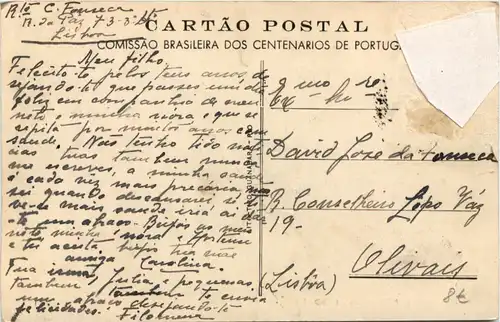 R/te C. Fonseca
R. da Paz 73-3º
Lisboa
CARTÃO POSTAL
COMISSÃO BRASILEIRA DOS CENTENARIOS DE PORTUGAL
Meu filho
Felicito-te pelos teus anos, de
sejando-te que passes um dia
feliz em companhia de meu
neto, e minha nora, e que se
repita por muitos anos com
saude. Não tenho tido noti
cias tuas tambem nunca
me escreves, a minha saude
é cada vez mais precaria, não
sei quando descansarei, se ti
ver mais saude irei ai dar
-te um abraço. Beijos ao meu
neto minha nora e
e tu aceita beijos tua mãe
amiga Carolina.
Tua irmã, Julia,
tambem, te envia
um abraço desejando-te
felicidades. Filomena
Exmo Sr.
David José da Fonseca
R. Conselheiro Lopo Vaz
19-
Olivais
(Lisboa)
8$